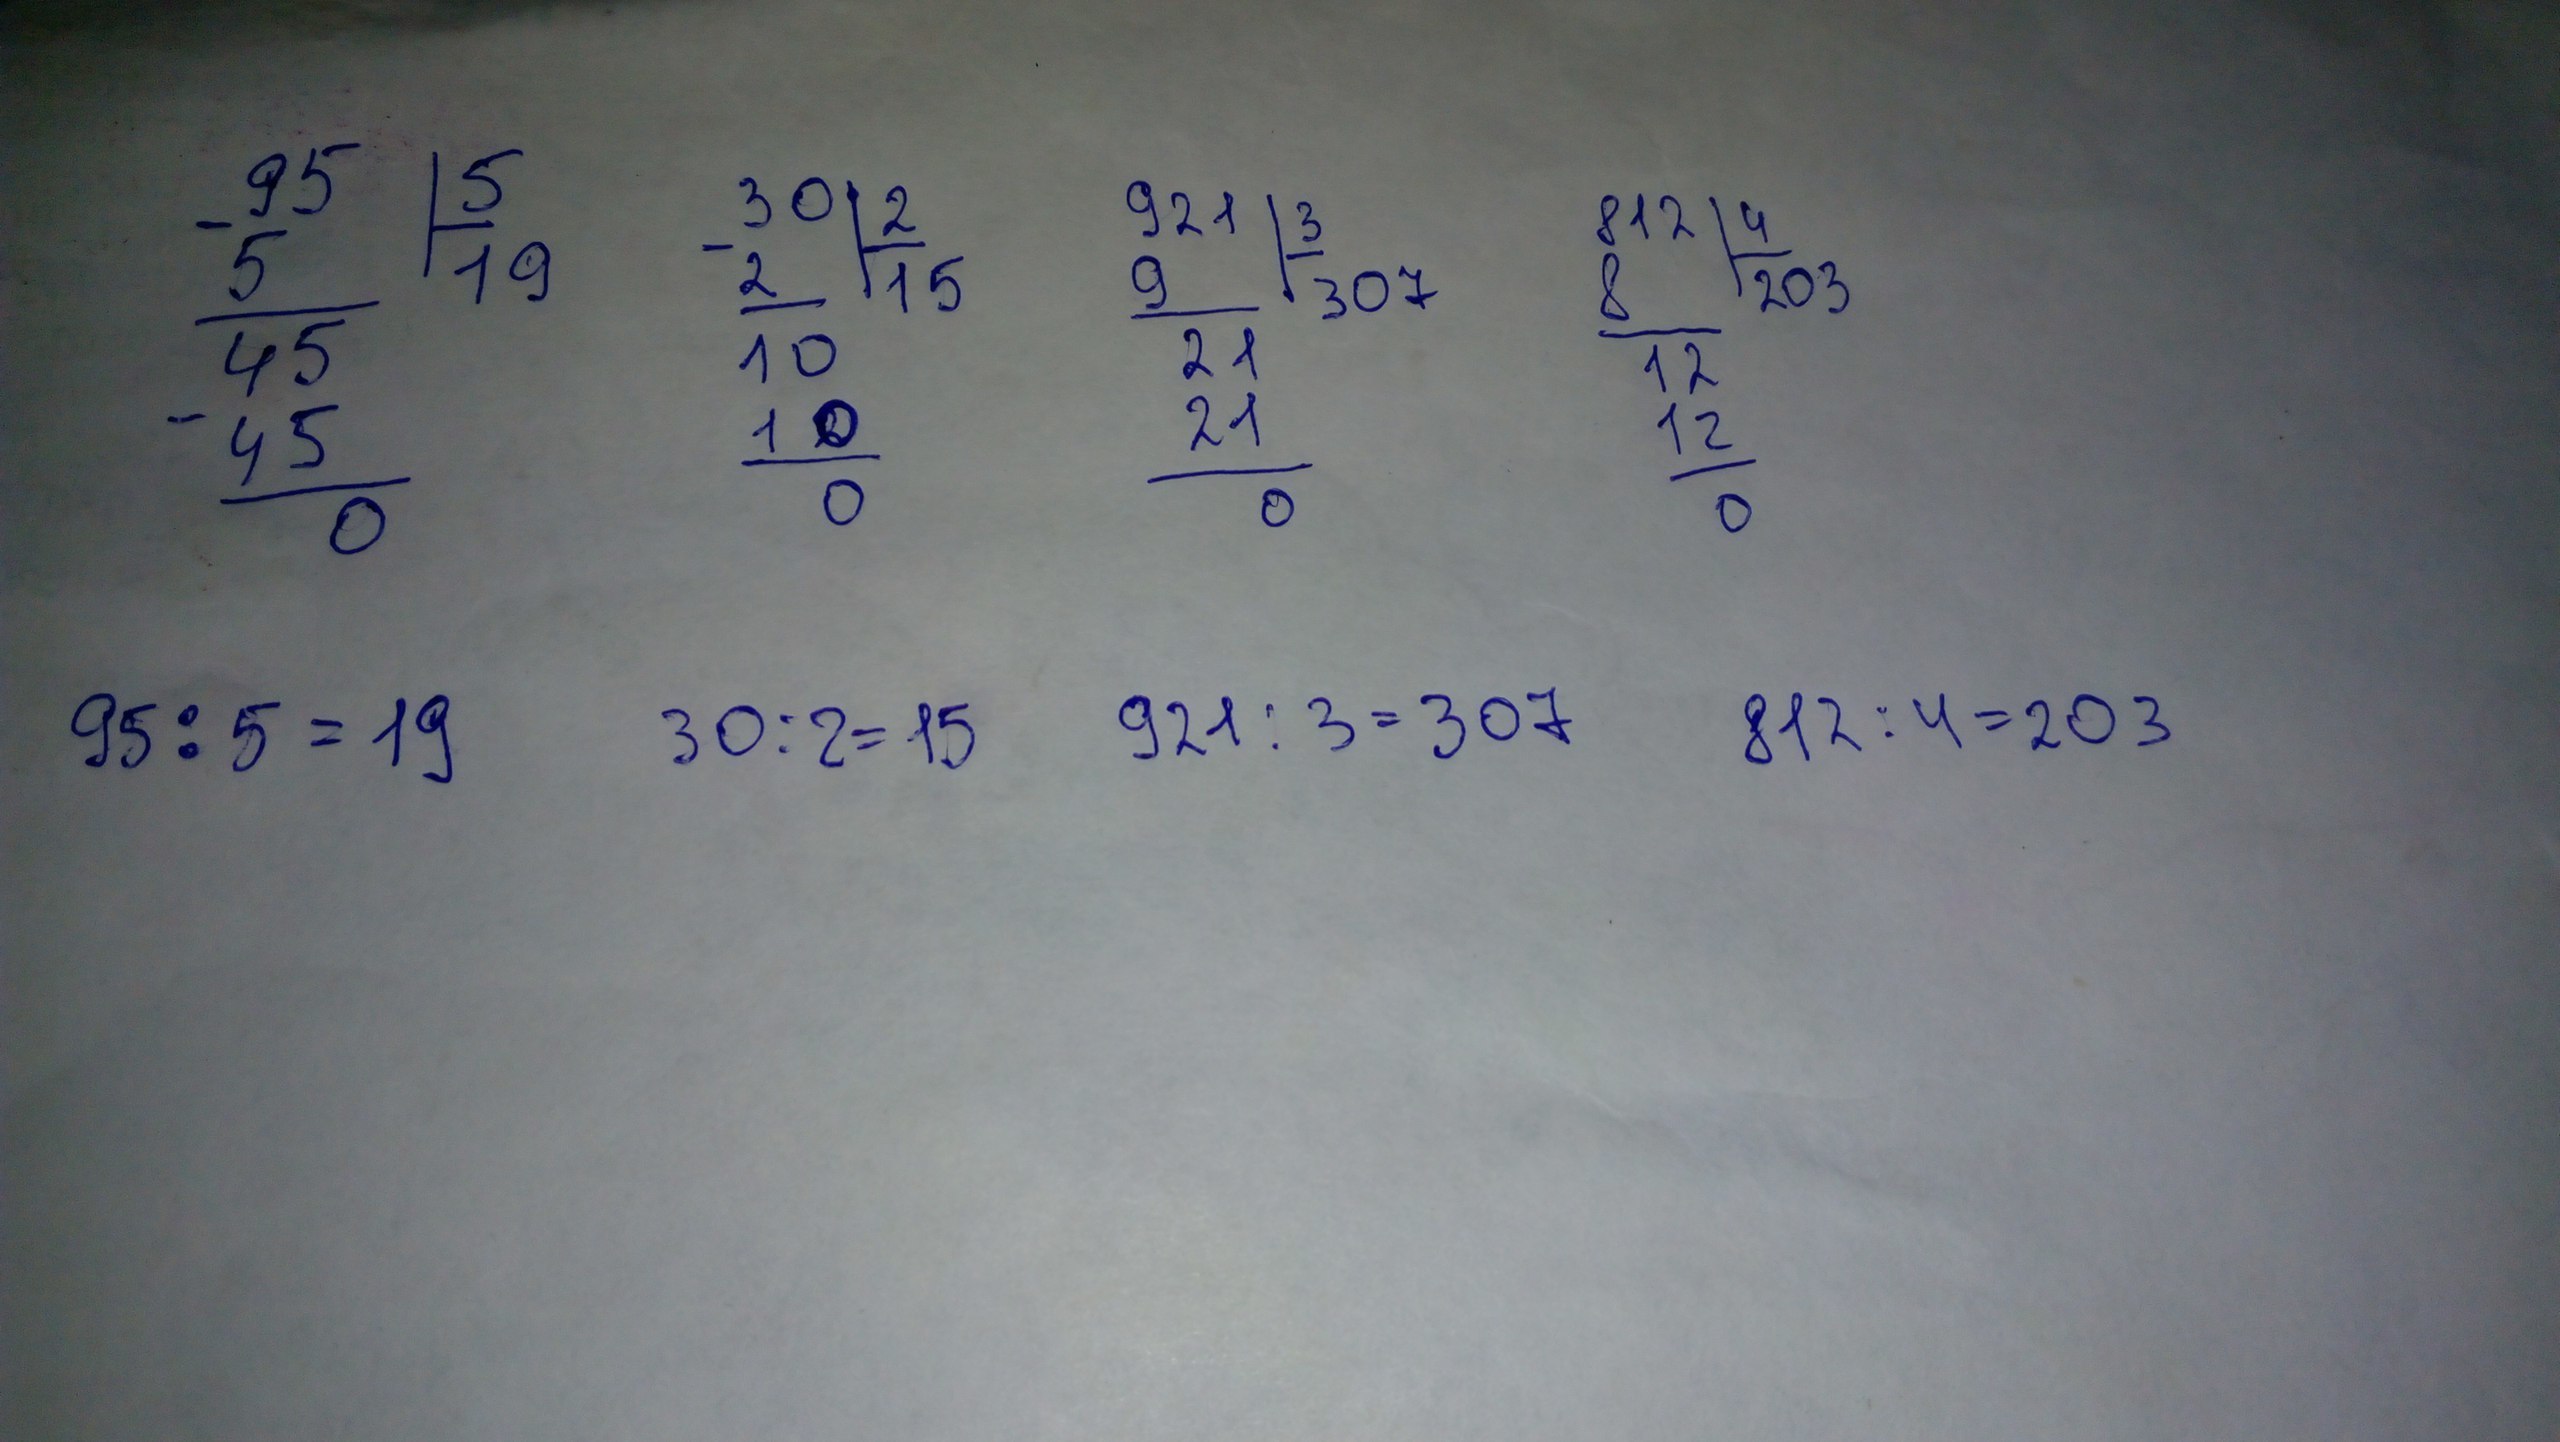 -95 |5 -30 |2 921 |3 812 |4
5 19 2 15 9 307 8 203
45 10 21 12
-45 10 21 12
0 0 0 0
95:5=19 30:2=15 921:3=307 812:4=203